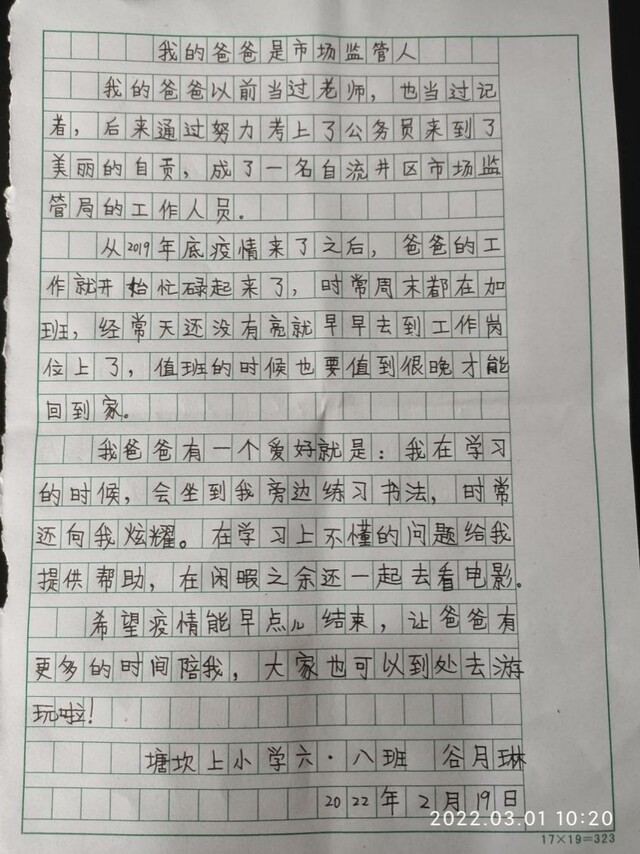 我的爸爸是市场监管人
我的爸爸以前当过老师，也当过记
者，后来通过努力考上了公务员来到了
美丽的自贡，成了一名自流井区市场监
管局的工作人员。
从2019年底疫情来了之后，爸爸的工
作就开始忙碌起来了，时常周末都在加
班，经常天还没有亮就早早去到工作岗
位上了，值班的时候也要值到很晚才能
回到家。
我爸爸有一个爱好就是：我在学习
的时候，会坐到我旁边练习书法，时常
还向我炫耀。在学习上不懂的问题给我
提供帮助，在闲暇之余还一起去看电影。
希望疫情能早点儿结束，让爸爸有
更多的时间陪我，大家也可以到处去游
玩啦！
塘坎上小学六·八班 谷月琳
2022年2月19日
2022.03.01 10:20
17×19=323